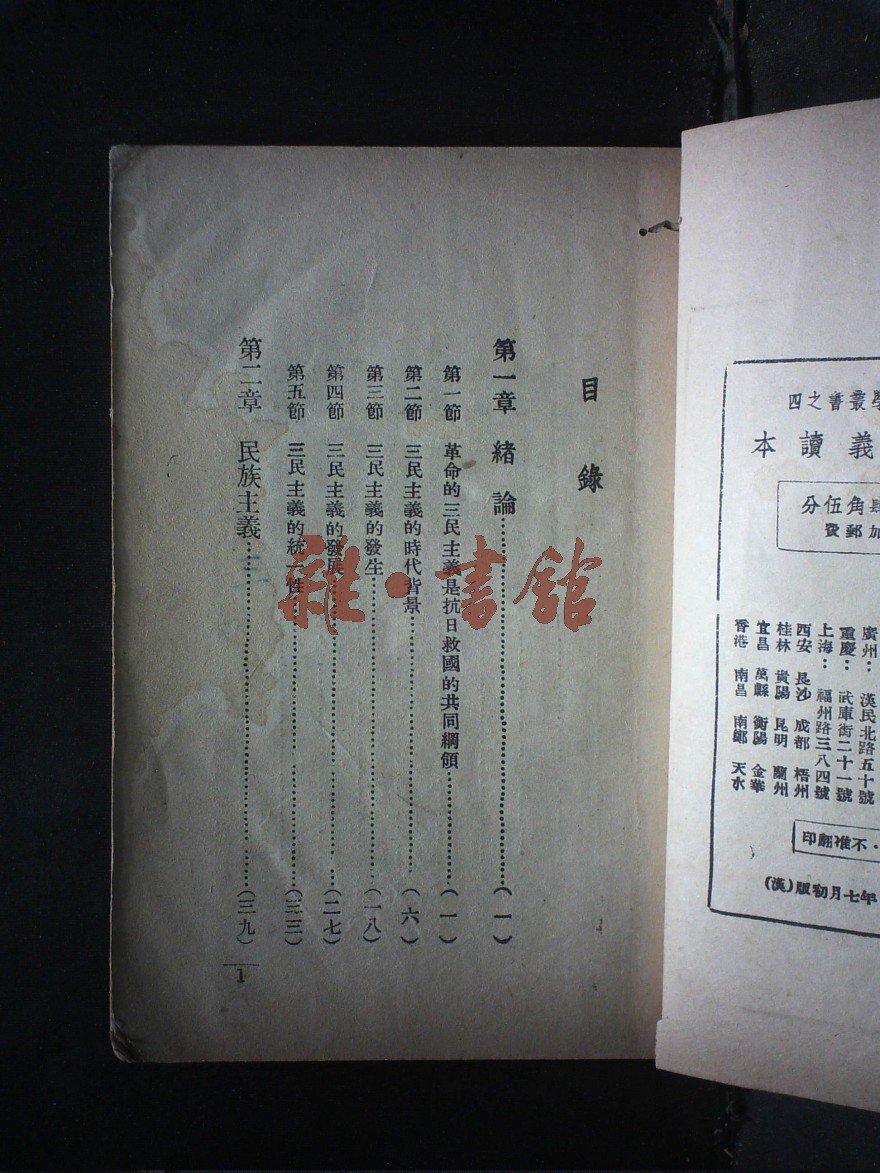 目錄
第一章 緒論……(一)
第一節 革命的三民主義是抗日救國的共同綱領……(一)
第二節 三民主義的時代背景……(六)
第三節 三民主義的發生……(一八)
第四節 三民主義的發展……(二七)
第五節 三民主義的統一性……(三三)
第二章 民族主義……(三九)
1
雜·書館
學叢書之四
義讀本
角伍分
加郵費
廣州:漢民北路五十號
重慶:武庫街二十一號
上海:福州路三八四號
西安 長沙 成都 梧州
桂林 貴陽 昆明 蘭州
宜昌 萬縣 衡陽 金華
香港 南昌 南鄭 天水
·不准翻印
年七月初版(漢)